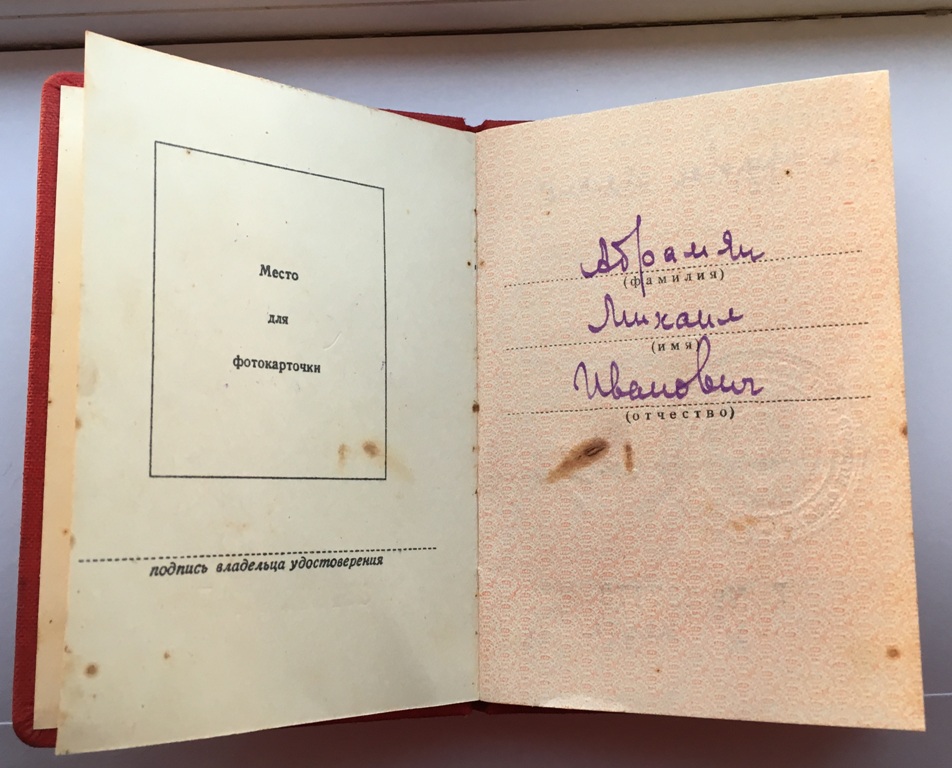 Место
для
фотокарточки
подпись владельца удостоверения
Абрамян
(фамилия)
Михаил
(имя)
Иванович
(отчество)